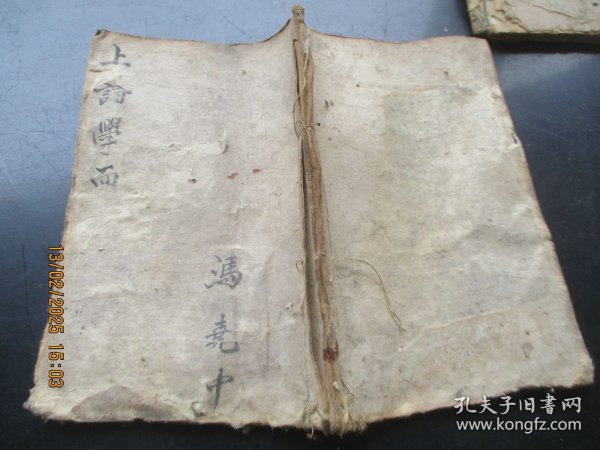 上語學而
馮堯中
13/02/2025 15:03
孔夫子旧書网
www.kongfz.com